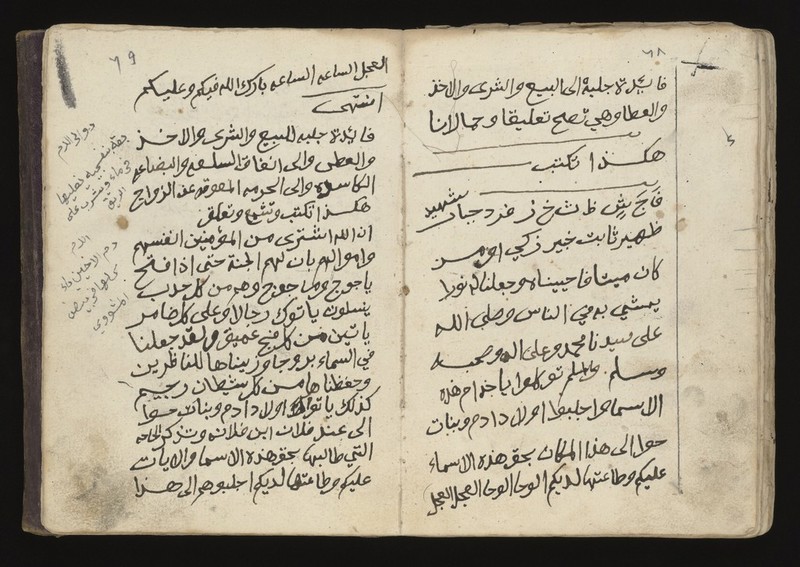 ٦٨
فايدة جلبة الى البيع والشرى والاخذ
والعطا وهي تصح تعليقا وحمالا انا
هكذا تكتب
فج ش ظ ث خ ز فرد جبار شهيد
ظهير ثابت خبير زكي اومن
كان ميتا فاحييناه وجعلنا له نورا
يمشي به في الناس وصلى الله
على سيدنا محمد وعلى اله وصحبه
وسلم توكلوا ياخدام هذه
الاسما واجلبوا اولاد ادم وبنات
حوا الى هذا المكان بحق هذه الاسماء
عليكم وطاعتها لديكم الوحا الوحا العجل العجل
٦٩
العجل الساعه الساعه بارك الله فيكم وعليكم
انتهى
فايدة جلبه للبيع والشرى والاخذ
والعطى والى انفاق السلعه والبضاعه
الكاسده والى الحرمه المعوقه عن الزواج
هكذا تكتب وتعلق
ان الله اشترى من المؤمنين انفسهم
واموالهم بان لهم الجنة حتى اذا فتح
ياجوج وماجوج وهم من كل حدب
ينسلون ياتوك رجالا وعلى كل ضامر
ياتين من كل فج عميق ولقد جعلنا
في السماء بروجا وزيناها للناظرين
وحفظناها من كل شيطان رجيم
كذلك ياتوا اولاد ادم وبنات حوا
الى عند فلان ابن فلانه وتذكر الحاجه
التي طالبها بحق هذه الاسما والايات
عليكم وطاعتها لديكم اجلبوهم الى هذا
الدم
دم الاخوين